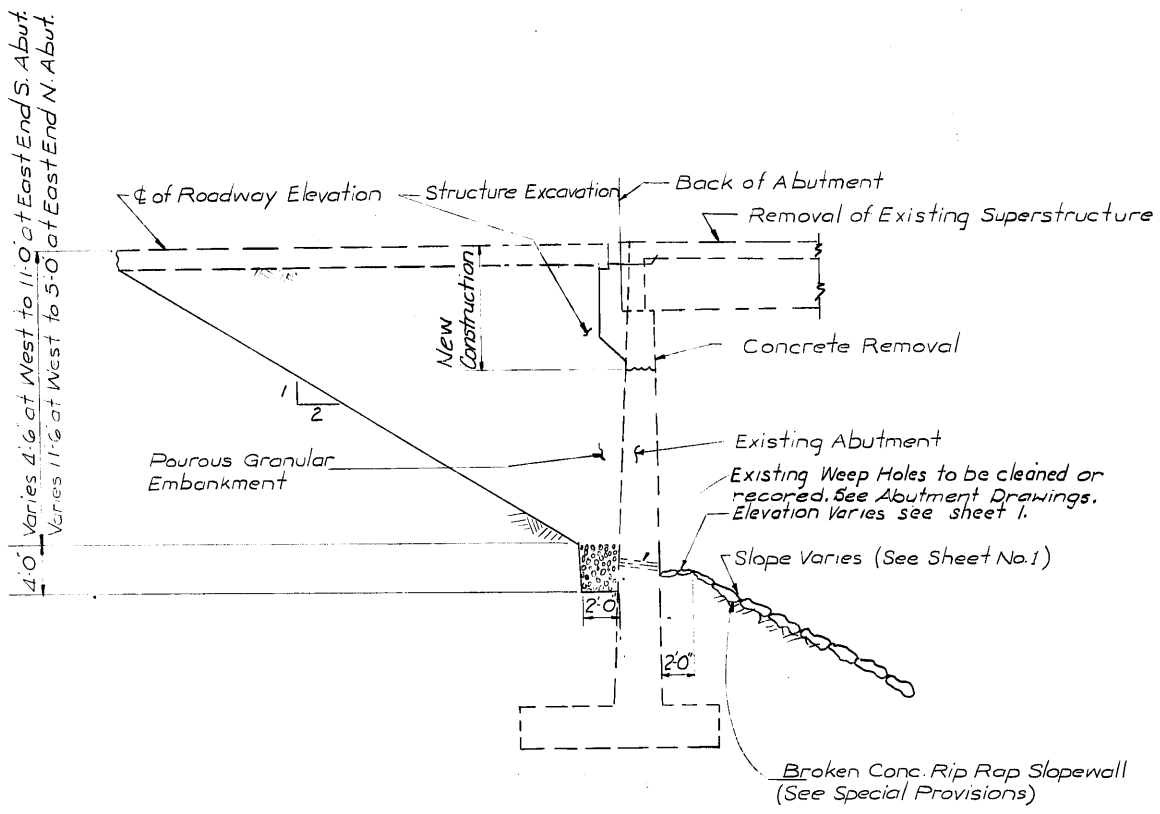 Varies 4'-6" at West to 11'-0" at East End S. Abut.
Varies 11'-6" at West to 5'-0" at East End N. Abut.
4'-0"
℄ of Roadway Elevation
Structure Excavation
Back of Abutment
Removal of Existing Superstructure
New
Construction
Concrete Removal
1
2
Pourous Granular
Embankment
Existing Abutment
Existing Weep Holes to be cleaned or
recored. See Abutment Drawings.
Elevation Varies see sheet 1.
Slope Varies (See Sheet No.1)
2'-0"
2'-0"
Broken Conc. Rip Rap Slopewall
(See Special Provisions)